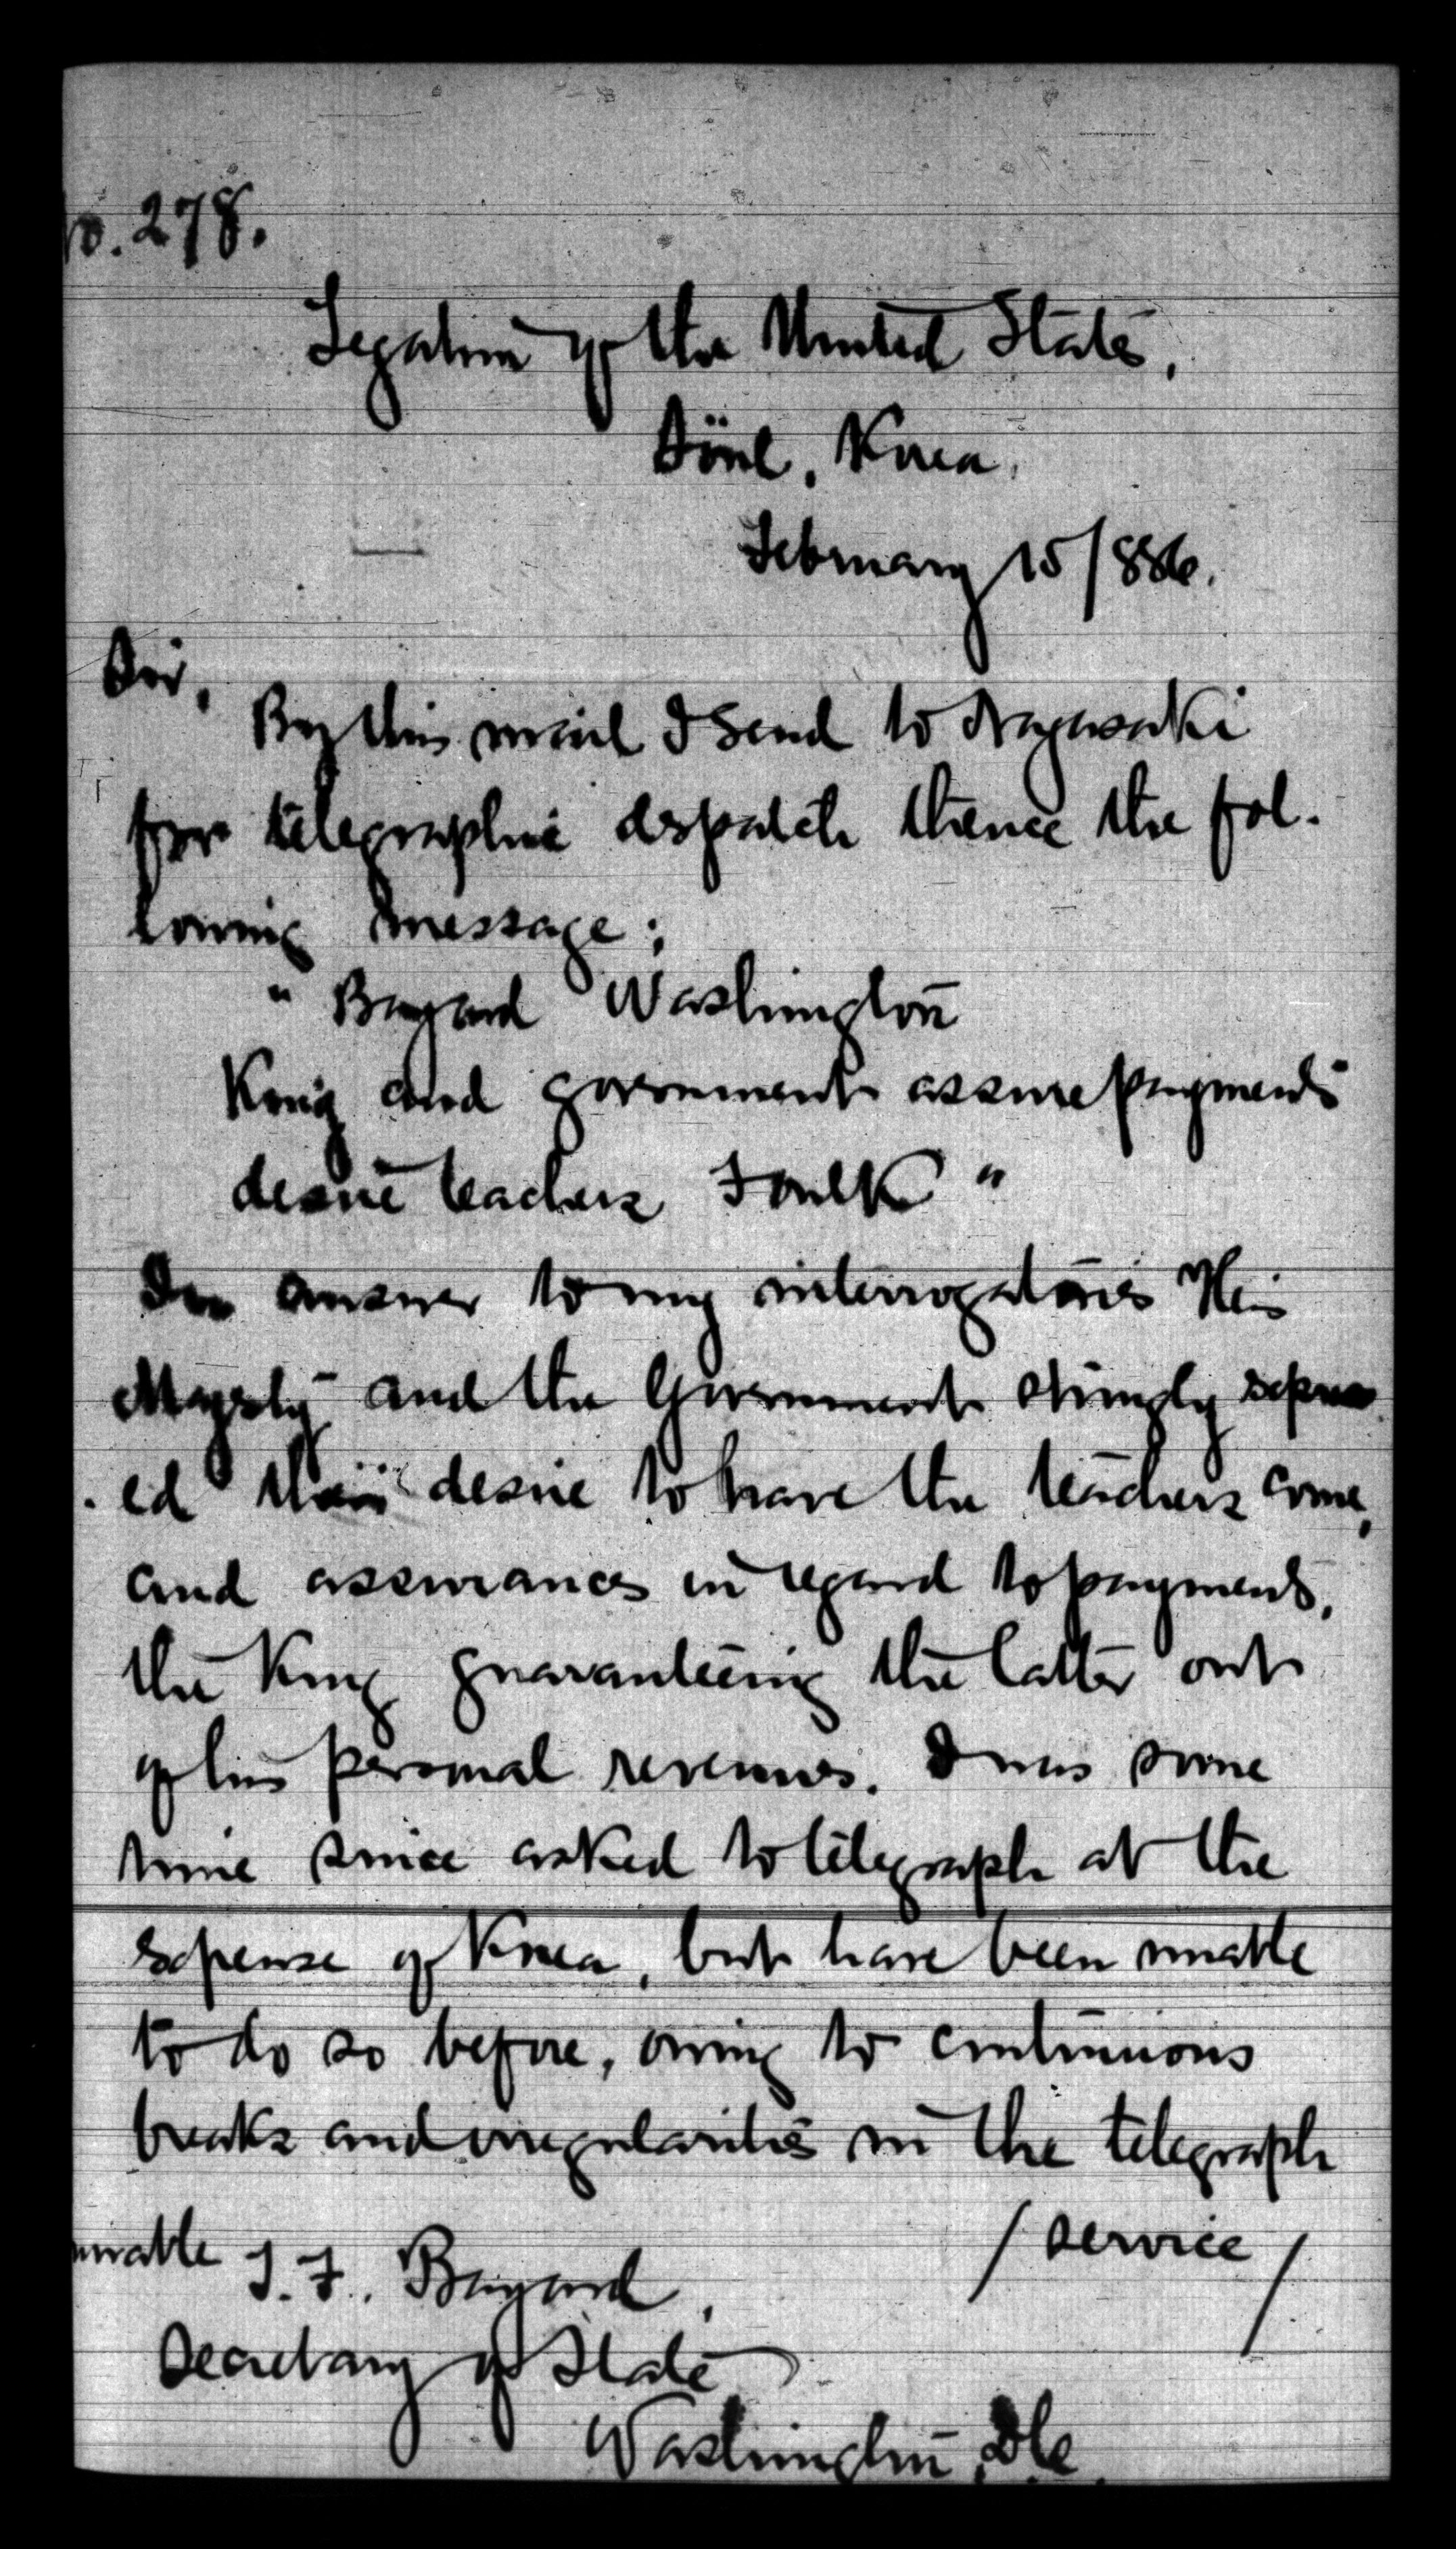 No. 278.
Legation of the United States,
Söul, Korea,
February 15/886.
Sir,
By this mail I send to Nagasaki
for telegraphic despatch thence the fol-
lowing message;
" Bayard Washington
King and government assure payments
desire teachers Foulk "
In answer to my interrogatories His
Majesty and the Government strongly express
-ed their desire to have the teachers come,
and assurances in regard to payments,
the King guaranteeing the latter out
of his personal revenues. I was some
time since asked to telegraph at the
expense of Korea, but have been unable
to do so before, owing to continuous
breaks and irregularities in the telegraph
/ service /
T. F. Bayard,
Secretary of State
Washington, D.C.